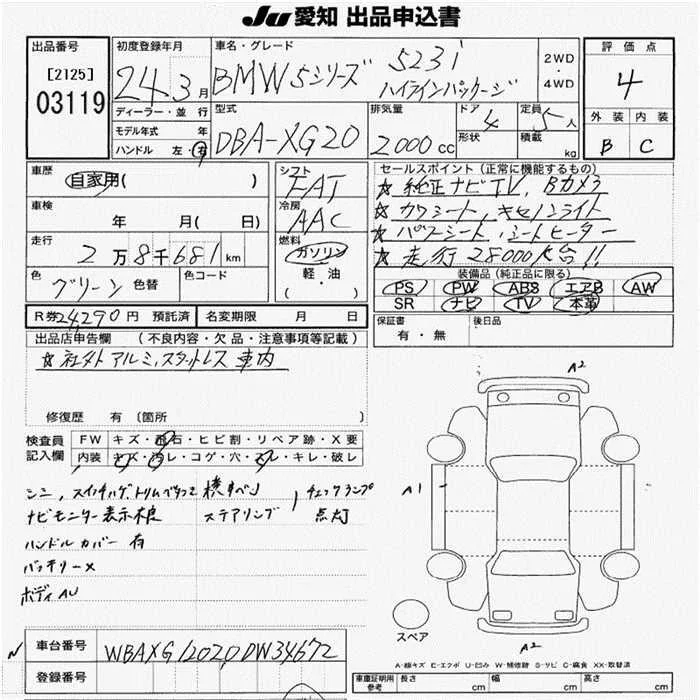 JU 愛知 出品申込書
出品番号 [2125] 03119
初度登録年月 24.3月
車名・グレード BMW 5シリーズ 523i ハイラインパッケージ
2WD・4WD
評価点 4
ディーラー・並行
モデル年式 年
ハンドル 左・右
型式 DBA-XG20
排気量 2000cc
ドア 4
形状
定員 5人
積載 kg
外装 内装
B C
車歴 自家用( )
シフト FAT
セールスポイント(正常に機能するもの)
☆ 純正ナビTV, Bカメラ
車検 年 月( 日)
冷房 AAC
☆ パワーシート, シートヒーター
走行 2万8千681km
燃料 ガソリン 軽・油 ( )
☆ 走行28000km台!!
色 グリーン 色替
色コード
装備品(純正品に限る)
PS PW ABS エアB AW
SR ナビ TV 本革
R券 24,290円 預託済
名変期限 月 日
保証書 有・無
後日品
出品店申告欄 (不良内容・欠品・注意事項等記載)
☆ 社外アルミ, スタットレス 車内
修復歴 有 〔箇所 〕
検査員記入欄
FW キズ・飛石・ヒビ割・リペア跡・X要
内装 キズ・汚レ・コゲ・穴・スレ・キレ・破レ
ナビモニター表示不良 ステアリング 点灯
ハンドルカバー 有
バッテリー×
ボディAU
A2
A1
A2
スペア
A-線キズ E-エクボ U-凹ミ W-補修跡 S-サビ C-腐食 XX-取替済
N 車台番号 WBAXG12020DW34672
登録番号
車庫証明用参考 長さ cm 幅 cm 高さ cm